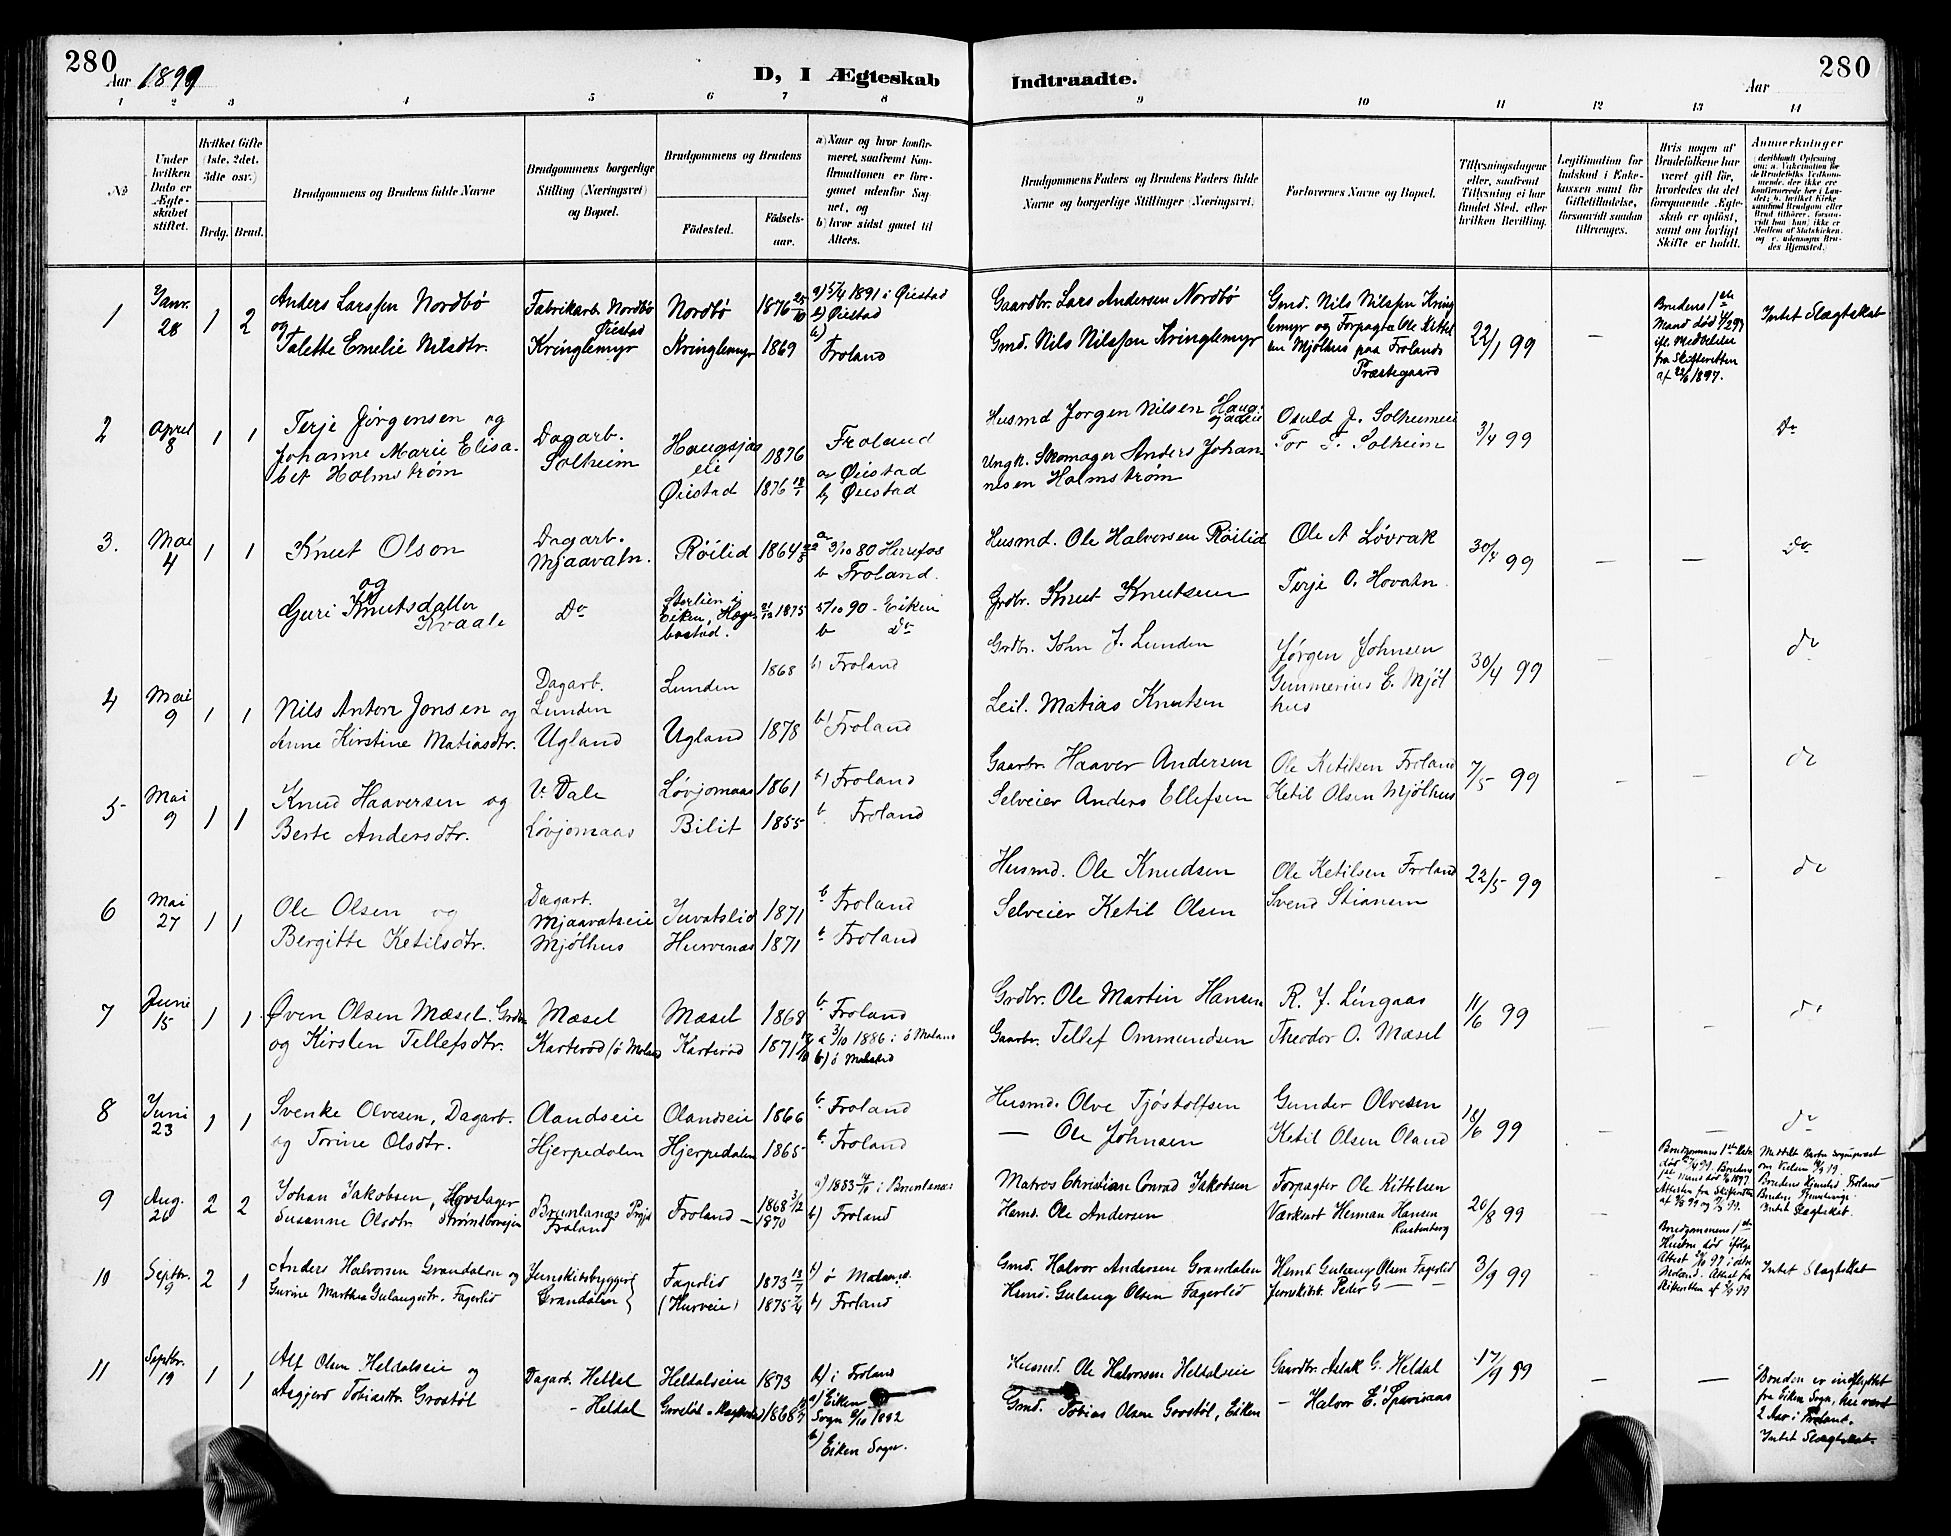 280
Aar 1899
D, I Ægteskab
Indtraadte.
Aar
280
1 2 3 4 5 6 7 8 9 10 11 12 13 14
No
Under hvilken Dato er Ægteskabet stiftet.
Hvilket Gifte (1ste, 2det, 3die osv.)
Brdg. Brud.
Brudgommens og Brudens fulde Navne
Brudgommens borgerlige Stilling (Næringsvei) og Bopæl.
Brudgommens og Brudens
Födested.
Födselsaar.
a) Naar og hvor konfirmeret, saafremt Konfirmationen er foregaaet udenfor Sognet, og
b) hvor sidst gaaet til Alters.
Brudgommens Faders og Brudens Faders fulde Navne og borgerlige Stillinger (Næringsvei.)
Forlovernes Navne og Bopæl.
Tillysningsdagene eller, saafremt Tillysning ei har fundet Sted, efter hvilken Bevilling.
Legitimation for Indskud i Enkekassen samt for Giftetilladelse, forsaavidt saadan tiltrænges.
Hvis nogen af Brudefolkene har været gift för, hvorledes da det foregaaende Ægteskab er oplöst, samt om lovligt Skifte er holdt.
Anmerkninger
1 Janr. 28 1 2
Anders Larssen Nordbø
og
Talette Emelie Nilsdtr.
Fabrikarb. Nordbø
Øiestad
Kringlemyr
Nordbø 1876 25/10
Kringlemyr 1869
a) 5/4 1891 i Øiestad
b) Øiestad
Froland
Gaardbr. Lars Andersen Nordbø
Gmd. Nils Nilssen Kringlemyr
Gmd. Nils Nilssen Kring
lemyr og Forpagter Ole Kittel
sen Mjølhus paa Frolands
Præstegaard
22/1 99
Brudens 1ste
Mand død
fra Skifteretten
af 22/6 1897.
Intet Slægtskab
2 April 8 1 1
Terje Jørgensen og
Johanne Marie Elisa-
bet Holmstrøm
Dagarb.
Solheim
Haugsjaa
eie 1876
Øiestad 1876 18/1
Froland
a Øiestad
b) Øiestad
Husmd Jorgen Nilsen Haug-
sjaaeie
Ungk. Skomager Anders Johan
nesen Holmstrøm
Osuld J. Solheimeie
Tor T. Solheim
3/4 99
Do
3. Mai 4 1 1
Knut Olson
og
Guri Knutsdatter
Kvaale
Dagarb.
Mjaavatn.
Do
Röilid 1864
Storlien i
Eiken, Hæge-
bostad. 21/12 1875
a 3/10 80 Herefos
b Froland.
5/10 90 - Eiken
b Do
Husmd. Ole Halvorsen Röilid
Grdbr. Knut Knutsen
Ole A Løvrak
Terje O. Hovatn
30/4 99
Do
4 Mai 9 1 1
Nils Anton Jonsen og
Anne Kirstine Matiasdtr.
Dagarb.
Lunden
Ugland
Lunden 1868
Ugland 1878
b) Froland
b) Froland
Grdbr. John J. Lunden
Leil. Matias Knutsen
Jørgen Johnsen
Gunnerius E. Mjöl
hus
30/4 99
do
5 Mai 9 1 1
Knud Haaversen og
Berte Andersdtr.
V. Dale
Løvjomaas
Løvjomaas 1861
Bilit 1855
b) Froland
b. Froland
Gaarbr. Haaver Andersen
Selveier Anders Ellefsen
Ole Ketilsen Froland
Ketil Olsen Mjølhus
7/5 99
do
6 Mai 27 1 1
Ole Olsen og
Bergitte Ketilsdtr.
Dagarb.
Mjaavatseie
Mjølhus
Juvatslid 1871
Hurvenes 1871
b. Froland
b. Froland
Husmd. Ole Knudsen
Selveier Ketil Olsen
Ole Ketilsen Froland
Svend Stianem
22/5 99
do
7 Juni 15 1 1
Øven Olsen Mæsel. Grdbr.
og Kirsten Tellefsdtr.
Mæsel
Karterød (ö Moland
Mæsel 1868
Karterød 1871
b. Froland
a 3/10 1886 i ö Moland
b) ö Moland
Grdbr. Ole Martin Hansen
Gaarbr. Tellef Ommundsen
R. J. Lingaas
Theodor O. Mæsel
11/6 99
do
8 Juni 23 1 1
Svenke Olvesen, Dagarb.
og Torine Olsdtr.
Olandseie
Hjerpedalen
Olandseie 1866
Hjerpedalen 1865
b. Froland
b. Froland
Husmd. Olve Tjöstolfsen
— Ole Johnsen
Gunder Olvesen
Ketil Olsen Oland
18/6 99
do
9 Aug. 26 2 2
Johan Jakobsen, Hovslager
Susanne Olsdtr. Strömsborgeien
Brunlanæs
Froland
Froland 1868 3/12
1870
a) 1883 i Brunlanæs
b) Froland
Matros Christian Conrad Jakobsen
Husmd. Ole Andersen
Forpagter Ole Kittelsen
Værksarb Herman Hansen
Rustenberg
20/8 99
Brudgommens 1ste
Intet Slægtskab.
10 Septbr. 9 2 1
Anders Halvorsen Grandalen og
Gurine Marthea Gulaugsdtr. Fagerlid
Grandalen
Fagerlid 1873
(Hurveie) 1875 7/4
b) ö Moland.
b) Froland
Gmd. Halvor Andersen Grandalen
Husmd. Gulaug Olsen Fagerlid
Husmd Gulaug Olsen Fagerlid
Peder G — —
3/9 99
Brudgommens 1ste
Hustru död ifølge
Moland. Attest fra
Skifteretten af
Intet Slægtskab
11 Septbr. 19 1 1
Alf Olsen Heldalseie og
Asgjerd Tobiasdtr. Grostöl
Dagarb. Heldal
- Heldal
Heldalseie 1873
1868
b) i Froland
a) Eiken
Sogn 1882
b) Eiken Sogn.
Husmd. Ole Halvorsen Heldalseie
Gmd. Tobias Olsen Grostöl, Eiken
Gaardbr. Aslak G. Heldal
— Halvor E.
17/9 99
Bruden er indflyttet
fra Eiken Sogn, har været
2 Aar i Froland.
Intet Slægtskab.